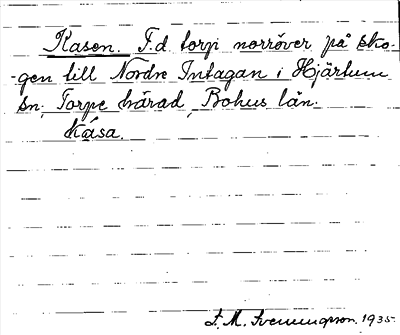 Kasen. F.d torp norröver på sko-
-gen till Nordre Intagan i Hjärtum
sn; Torpe härad, Bohus län.
Kåsa.
F. M. Svenungsson. 1935.